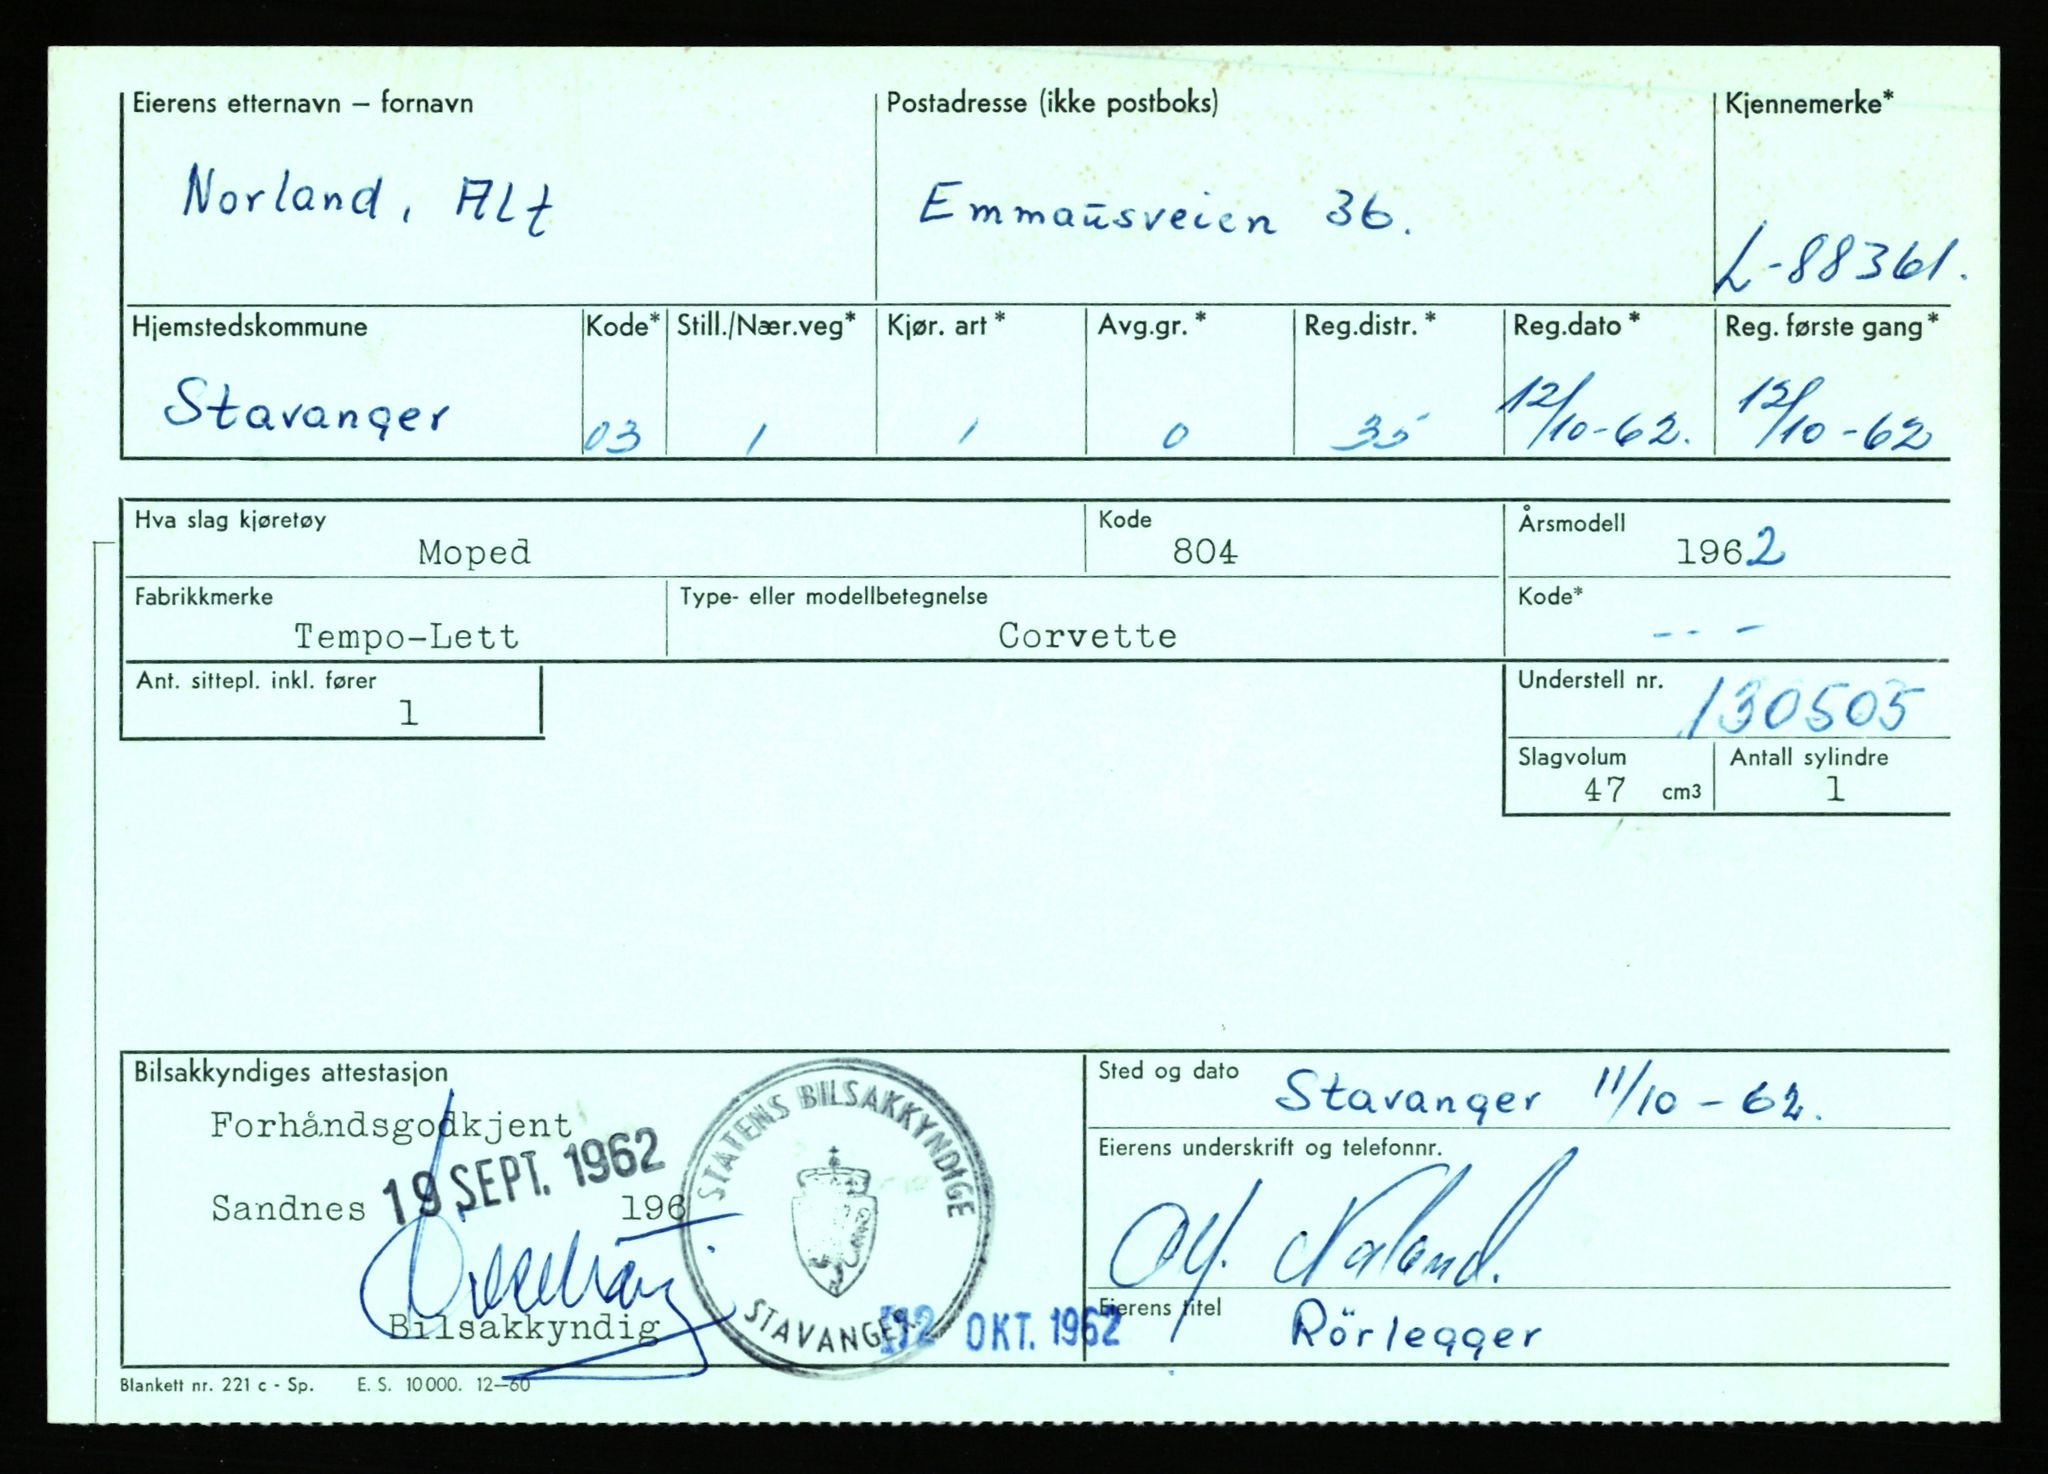 Eierens etternavn – fornavn Postadresse (ikke postboks) Kjennemerke*
Norland, Alf Emmausveien 36. L-88361.
Hjemstedskommune Kode* Still./Nær.veg* Kjør. art* Avg.gr.* Reg.distr.* Reg.dato* Reg. første gang*
Stavanger 03 1 1 0 35 12/10-62. 12/10-62
Hva slag kjøretøy Kode Årsmodell
Moped 804 1962
Fabrikkmerke Type- eller modellbetegnelse Kode*
Tempo-Lett Corvette ---
Ant. sittepl. inkl. fører Understell nr.
1 130505
Slagvolum Antall sylindre
47 cm3 1
Bilsakkyndiges attestasjon Sted og dato
Stavanger 11/10-62.
Forhåndsgodkjent
Eierens underskrift og telefonnr.
19 SEPT. 1962
Sandnes 196
STATENS BILSAKKYNDIGE
STAVANGER
Bilsakkyndig
12 OKT. 1962
Eierens titel
Rörlegger
Blankett nr. 221 c - Sp. E. S. 10000. 12–60